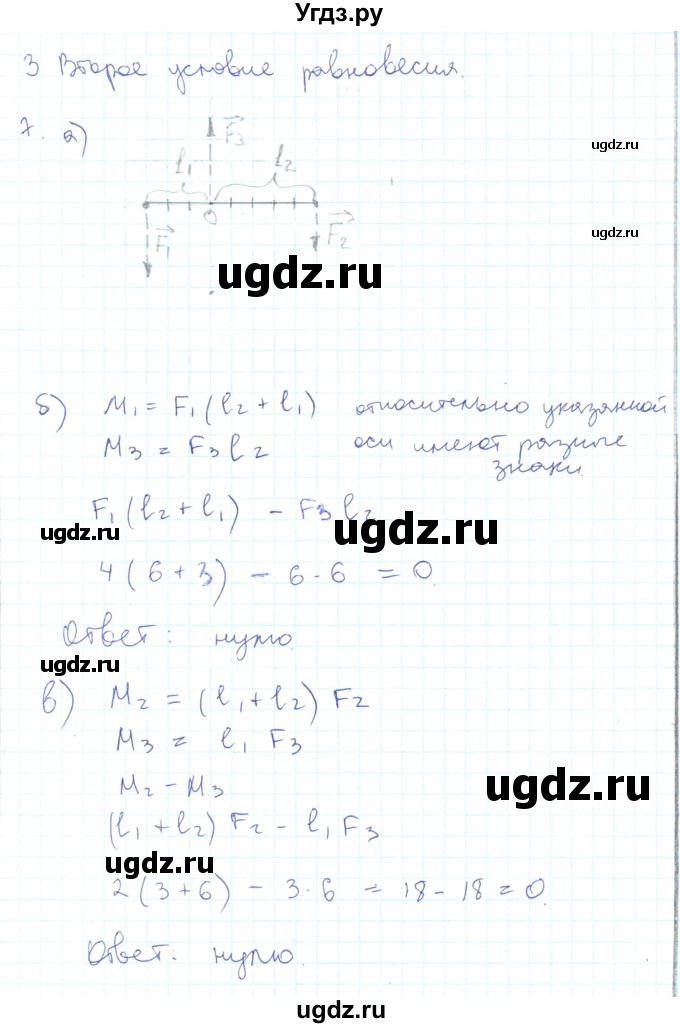 Угдз.ру
3 Второе условие равновесия.
ugdz.ru
7. а)
F₃
l₁ l₂
0
ugdz.ru
F₁ F₂
ugdz.ru
б) M₁ = F₁ (l₂ + l₁) относительно указанной
M₃ = F₃ l₂ оси имеют разные
знаки.
F₁ (l₂ + l₁) - F₃ l₂
ugdz.ru ugdz.ru
4 (6 + 3) - 6 · 6 = 0.
Ответ: нулю.
ugdz.ru
в) M₂ = (l₁ + l₂) F₂
M₃ = l₁ F₃
M₂ - M₃
ugdz.ru
(l₁ + l₂) F₂ - l₁ F₃
ugdz.ru
2 (3 + 6) - 3 · 6 = 18 - 18 = 0.
Ответ: нулю.
ugdz.ru